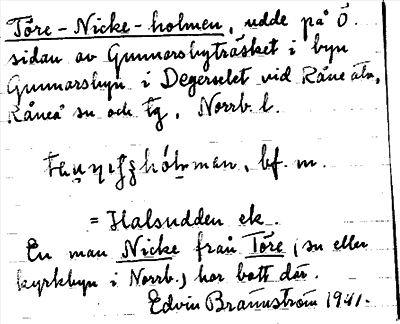 Töre-Nicke-holmen, udde på Ö.
sidan av Gunnarsbyträsket i byn
Gunnarsbyn i Degerselet vid Råne älv,
Råneå sn och tg, Norrb. l.
hólman, bf. m.
= Halsudden ek.
En man Nicke från Töre, (sn eller
kyrkbyn i Norrb.) har bott där.
Edvin Brännström 1941.